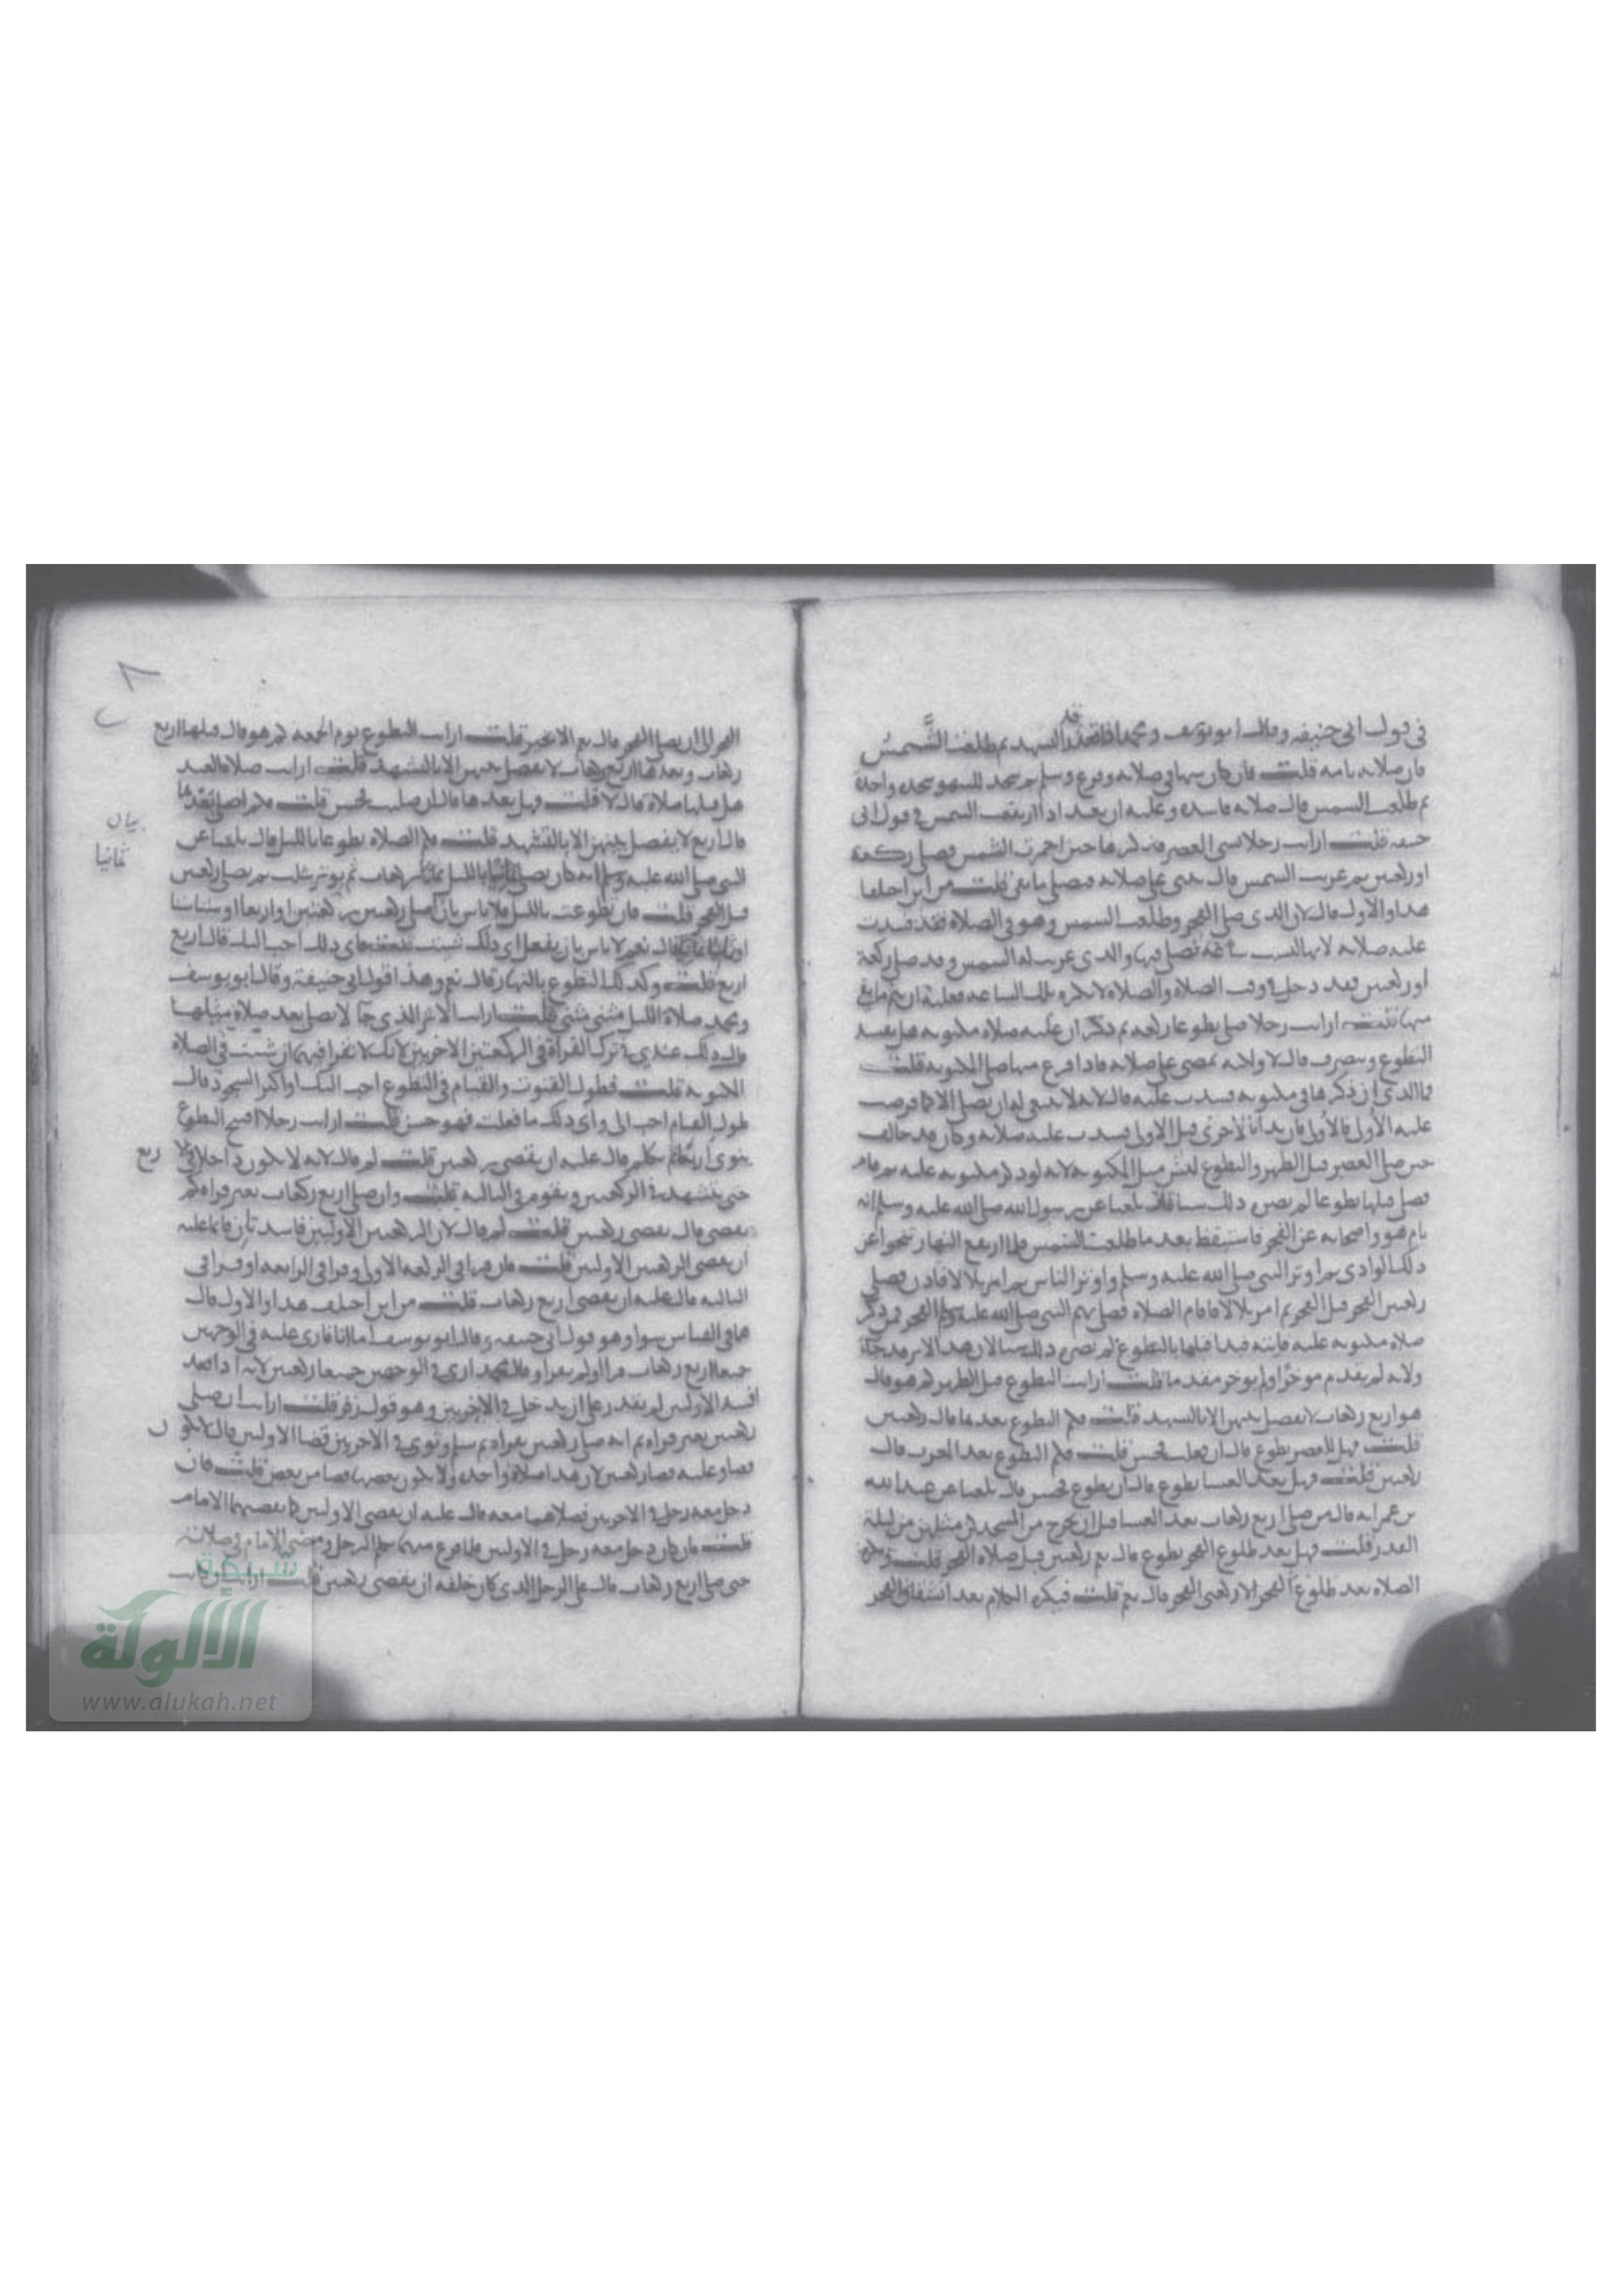 في قول ابي حنيفة وقال ابو يوسف ومحمد اذا قعد قدر التشهد ثم طلعت الشَّمسُ
فان صلاته تامة قلت فان كان سها في صلاته وفرع وسلم ثم سجد للسهو سجده واحدة
ثم طلعت الشمس قال صلاته فاسده وعليه ان يعيد اذا ارتفعت الشمس في قول ابي
حنيفه قلت ارايت رجلا نسي العصر فذكرها حين احمرت الشمس فصلى ركعة
او ركعتين ثم غربت الشمس قال يمضي على صلاته فيصلي ما بقي قلت من اين اختلفا
هذا والاول قال لان الذي صلى الفجر وطلعت الشمس وهو في الصلاة فقد فسدت
عليه صلاته لانها ليست ساعة تصلى فيها والذي غربت له الشمس وقد صلى ركعة
او ركعتين فقد دخل في وقت الصلاة والصلاة لا تكره تلك الساعه فعليه ان يتم ما بقي
منها قلت ارايت رجلا صلى تطوعا ركعه ثم ذكر ان عليه صلاه مكتوبه هل يفسد
التطوع وينصرف قال لا ولكنه يمضي على صلاته فاذا فرغ منها صلى المكتوبه قلت
فما الذي ان ذكرها في مكتوبه فسدت عليه قال لانه لا ينبغي له ان يصلي الا كما فرضت
عليه الأول فالأول فان بدأ بالأخرى قبل الاولى فسدت عليه صلاته وكان قد خالف
حين صلى العصر قبل الظهر والتطوع ليس مثل المكتوبه لانه لو ذكر مكتوبه عليه ثم قام
فصلى قبلها تطوعا لم يضره ذلك شيا بلغنا عن رسول الله صلى الله عليه وسلم انه
نام هو واصحابه عن الفجر فاستيقظ بعد ما طلعت الشمس فلما ارتفع النهار تنحوا عن
ذلك الوادي ثم اوتر النبي صلى الله عليه وسلم واوتر الناس ثم امر بلالا فاذن فصلى
ركعتي الفجر قبل الفجر ثم امر بلالا فاقام الصلاه فصلى بهم النبي صلى الله عليه وسلم الفجر فمن ذكر
صلاه مكتوبه عليه فايته فبدا قبلها بالتطوع لم يضره ذلك شيا لان هذا الاثر قد جا
ولانه لم يقدم موخرا ولم يوخر مقدما قلت ارايت التطوع قبل الظهر كم هو قال
هو اربع ركعات لا تفصل بينهن الا بالتشهد قلت فكم التطوع بعدها قال ركعتين
قلت فهل للعصر تطوع قال ان فعلت فحسن قلت فكم التطوع بعد المغرب قال
ركعتين قلت فهل بعد العشا تطوع قال ان تطوع فحسن قال بلغنا عن عبد الله
بن عمر انه قال من صلى اربع ركعات بعد العشا قبل ان يخرج من المسجد كن مثلهن من ليلة
القدر قلت فهل بعد طلوع الفجر تطوع قال نعم ركعتين قبل صلاه الفجر قلت
الصلاه بعد طلوع الفجر الا ركعتي الفجر قال نعم قلت فيكره الكلام بعد انشقاق الفجر
الفجر الى ان يصلي الفجر قال نعم الا بخير قلت ارايت التطوع يوم الجمعه كم هو قال قبلها اربع
ركعات وبعدها اربع ركعات لا يفصل بينهن الا بالتشهد قلت ارايت صلاه العيد
هل قبلها صلاة قال لا قلت فهل بعدها قال ان صليت فحسن قلت فكم اصلي بَعْدها
قال اربع لا يفصل بينهن الا بالتشهد قلت فكم الصلاه تطوعا بالليل قال بلغنا عن
بيان
ثمانيا
النبي صلى الله عليه وسلم انه كان يصلي بالليل ثمان ركعات ثم يوتر بثلث ثم يصلي ركعتين
قبل الفجر قلت فان تطوعت بالليل فلا باس بان اصلي ركعتين ركعتين او اربعا او ستا ستا
او ثمانيا ثمانيا قال نعم لا باس بان تفعل اي ذلك شيت قلت فاي ذلك احب اليك قال اربع
اربع قلت وكذلك التطوع بالنهار قال نعم وهذا قول ابي حنيفة وقال ابو يوسف
ومحمد صلاة الليل مثنى مثنى قلت ارايت الاثر الذي جآ لا يصلى بعد صلاة مثلها
قال ذلك عندي في ترك القراة في الركعتين الاخريين لانك لا تقرا فيهما ان شيت في الصلاة
المكتوبه قلت فطول القنوت والقيام في التطوع احب اليك او اكثر السجود قال
طول القيام احب الي واي ذلك ما فعلت فهو حسن قلت ارايت رجلا افتتح التطوع
ينوي اربع ركعات ثم تكلم قال عليه ان يقضي ركعتين قلت لم قال لانه لا يكون داخلا في الا
ربع
حتى يتشهد في الركعتين ويقوم في الثالثه قلت وان صلى اربع ركعات بغير قراه كم
يقضي قال يقضي ركعتين قلت لم قال لان الركعتين الاوليين فاسدتان فانما عليه
ان يقضي الركعتين الاوليين قلت فان قرا في الركعه الاولى وقرا في الرابعه او قرا في
الثالثه قال عليه ان يقضي اربع ركعات قلت من اين اختلف هذا والاول قال
هما في القياس سوا وهو قول ابي حنيفه وقال ابو يوسف اما انا فارى عليه في الوجهين
جميعا اربع ركعات قرا او لم يقرا وقال محمد ارى في الوجهين جميعا ركعتين لانه اذا
افسد الاوليين لم يقدر على ان يدخل في الاخريين وهو قول زفر قلت ارايت ان صلى
ركعتين بغير قراه ثم انه صلى ركعتين بقراه ثم سلم ونوى في الاخريين قضا الاوليين قال لا يكو
ن
قضاو عليه قضا ركعتين لان هذا صلاة واحده ولا يكون بعضها قضا من بعض قلت فان
دخل معه رجل في الاخريين فصلاهما معه قال عليه ان يقضي الاوليين كما يقضيهما الامام
قلت فان كان دخل معه رجل في الاوليين فلما فرغ منهما تكلم الرجل ومضى الامام في صلاته
حتى صلى اربع ركعات قال على الرجل الذي كان خلفه ان يقضي ركعتين قلت ارايت
شبكة
الألوكة
www.alukah.net